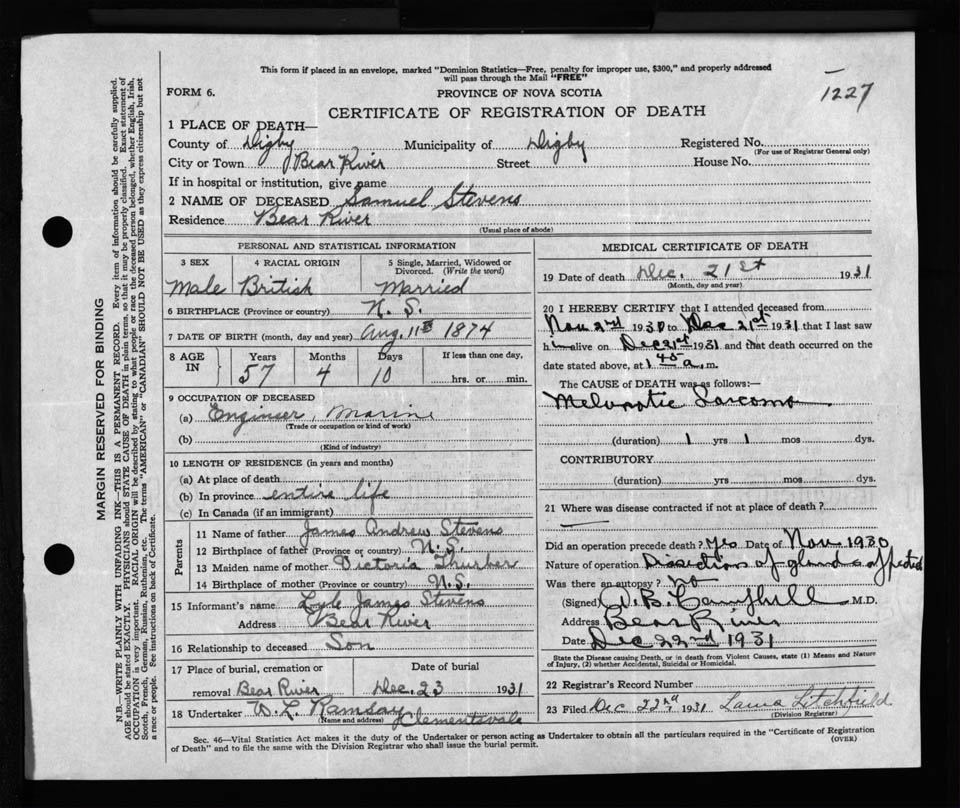 This form if placed in an envelope, marked "Dominion Statistics—Free, penalty for improper use, $300," and properly addressed
will pass through the Mail "FREE"
FORM 6.
PROVINCE OF NOVA SCOTIA
1227
CERTIFICATE OF REGISTRATION OF DEATH
1 PLACE OF DEATH—
County of Digby Municipality of Digby Registered No.
(For use of Registrar General only)
City or Town Bear River Street House No.
If in hospital or institution, give name
2 NAME OF DECEASED Samuel Stevens
Residence Bear River
(Usual place of abode)
PERSONAL AND STATISTICAL INFORMATION
3 SEX 4 RACIAL ORIGIN 5 Single, Married, Widowed or
Divorced. (Write the word)
Male British Married
6 BIRTHPLACE (Province or country) N. S.
7 DATE OF BIRTH (month, day and year) Aug. 11th 1874
8 AGE IN Years Months Days If less than one day,
57 4 10 hrs. or min.
9 OCCUPATION OF DECEASED
(a) Engineer, Marine
(Trade or occupation or kind of work)
(b)
(Kind of industry)
10 LENGTH OF RESIDENCE (in years and months)
(a) At place of death
(b) In province entire life
(c) In Canada (if an immigrant)
Parents
11 Name of father James Andrew Stevens
12 Birthplace of father (Province or country) N. S.
13 Maiden name of mother Victoria Thurber
14 Birthplace of mother (Province or country) N. S.
15 Informant's name Lyle James Stevens
Address Bear River
16 Relationship to deceased Son
17 Place of burial, cremation or Date of burial
removal Bear River Dec. 23 1931
18 Undertaker W. L. Ramsay
(Name and address) Clementsvale
MEDICAL CERTIFICATE OF DEATH
19 Date of death Dec. 21st 1931
(Month, day and year)
20 I HEREBY CERTIFY that I attended deceased from
Nov 2nd 1930 to Dec 21st 1931 that I last saw
him alive on Dec 21st 1931 and that death occurred on the
date stated above, at 1 45 a. m.
The CAUSE OF DEATH was as follows:—
Melanotic Sarcoma
(duration) 1 yrs 1 mos dys.
CONTRIBUTORY
(duration) yrs mos dys.
21 Where was disease contracted if not at place of death?
Did an operation precede death? Yes Date of Nov 1930
Nature of operation Dissection of glands affected
Was there an autopsy? no
(Signed) Campbell M.D.
Address Bear River
Date Dec 22nd 1931
State the Disease causing Death, or in death from Violent Causes, state (1) Means and Nature
of Injury, (2) whether Accidental, Suicidal or Homicidal.
22 Registrar's Record Number
23 Filed Dec 22nd 1931 Laura Litchfield
(Division Registrar)
Sec. 46—Vital Statistics Act makes it the duty of the Undertaker or person acting as Undertaker to obtain all the particulars required in the "Certificate of Registration
of Death" and to file the same with the Division Registrar who shall issue the burial permit.
(OVER)
MARGIN RESERVED FOR BINDING
N.B.—WRITE PLAINLY WITH UNFADING INK—THIS IS A PERMANENT RECORD. Every item of information should be carefully supplied.
AGE should be stated EXACTLY. PHYSICIANS should STATE CAUSE OF DEATH in plain terms, so that it may be properly classified. Exact statement of
OCCUPATION is very important. RACIAL ORIGIN will be described by stating to what people or race the deceased person belonged, whether English, Irish,
Scotch, French, German, Russian, Ruthenian, etc. The terms "AMERICAN" or "CANADIAN" SHOULD NOT BE USED as they express citizenship but not
a race or people. See instructions on back of Certificate.